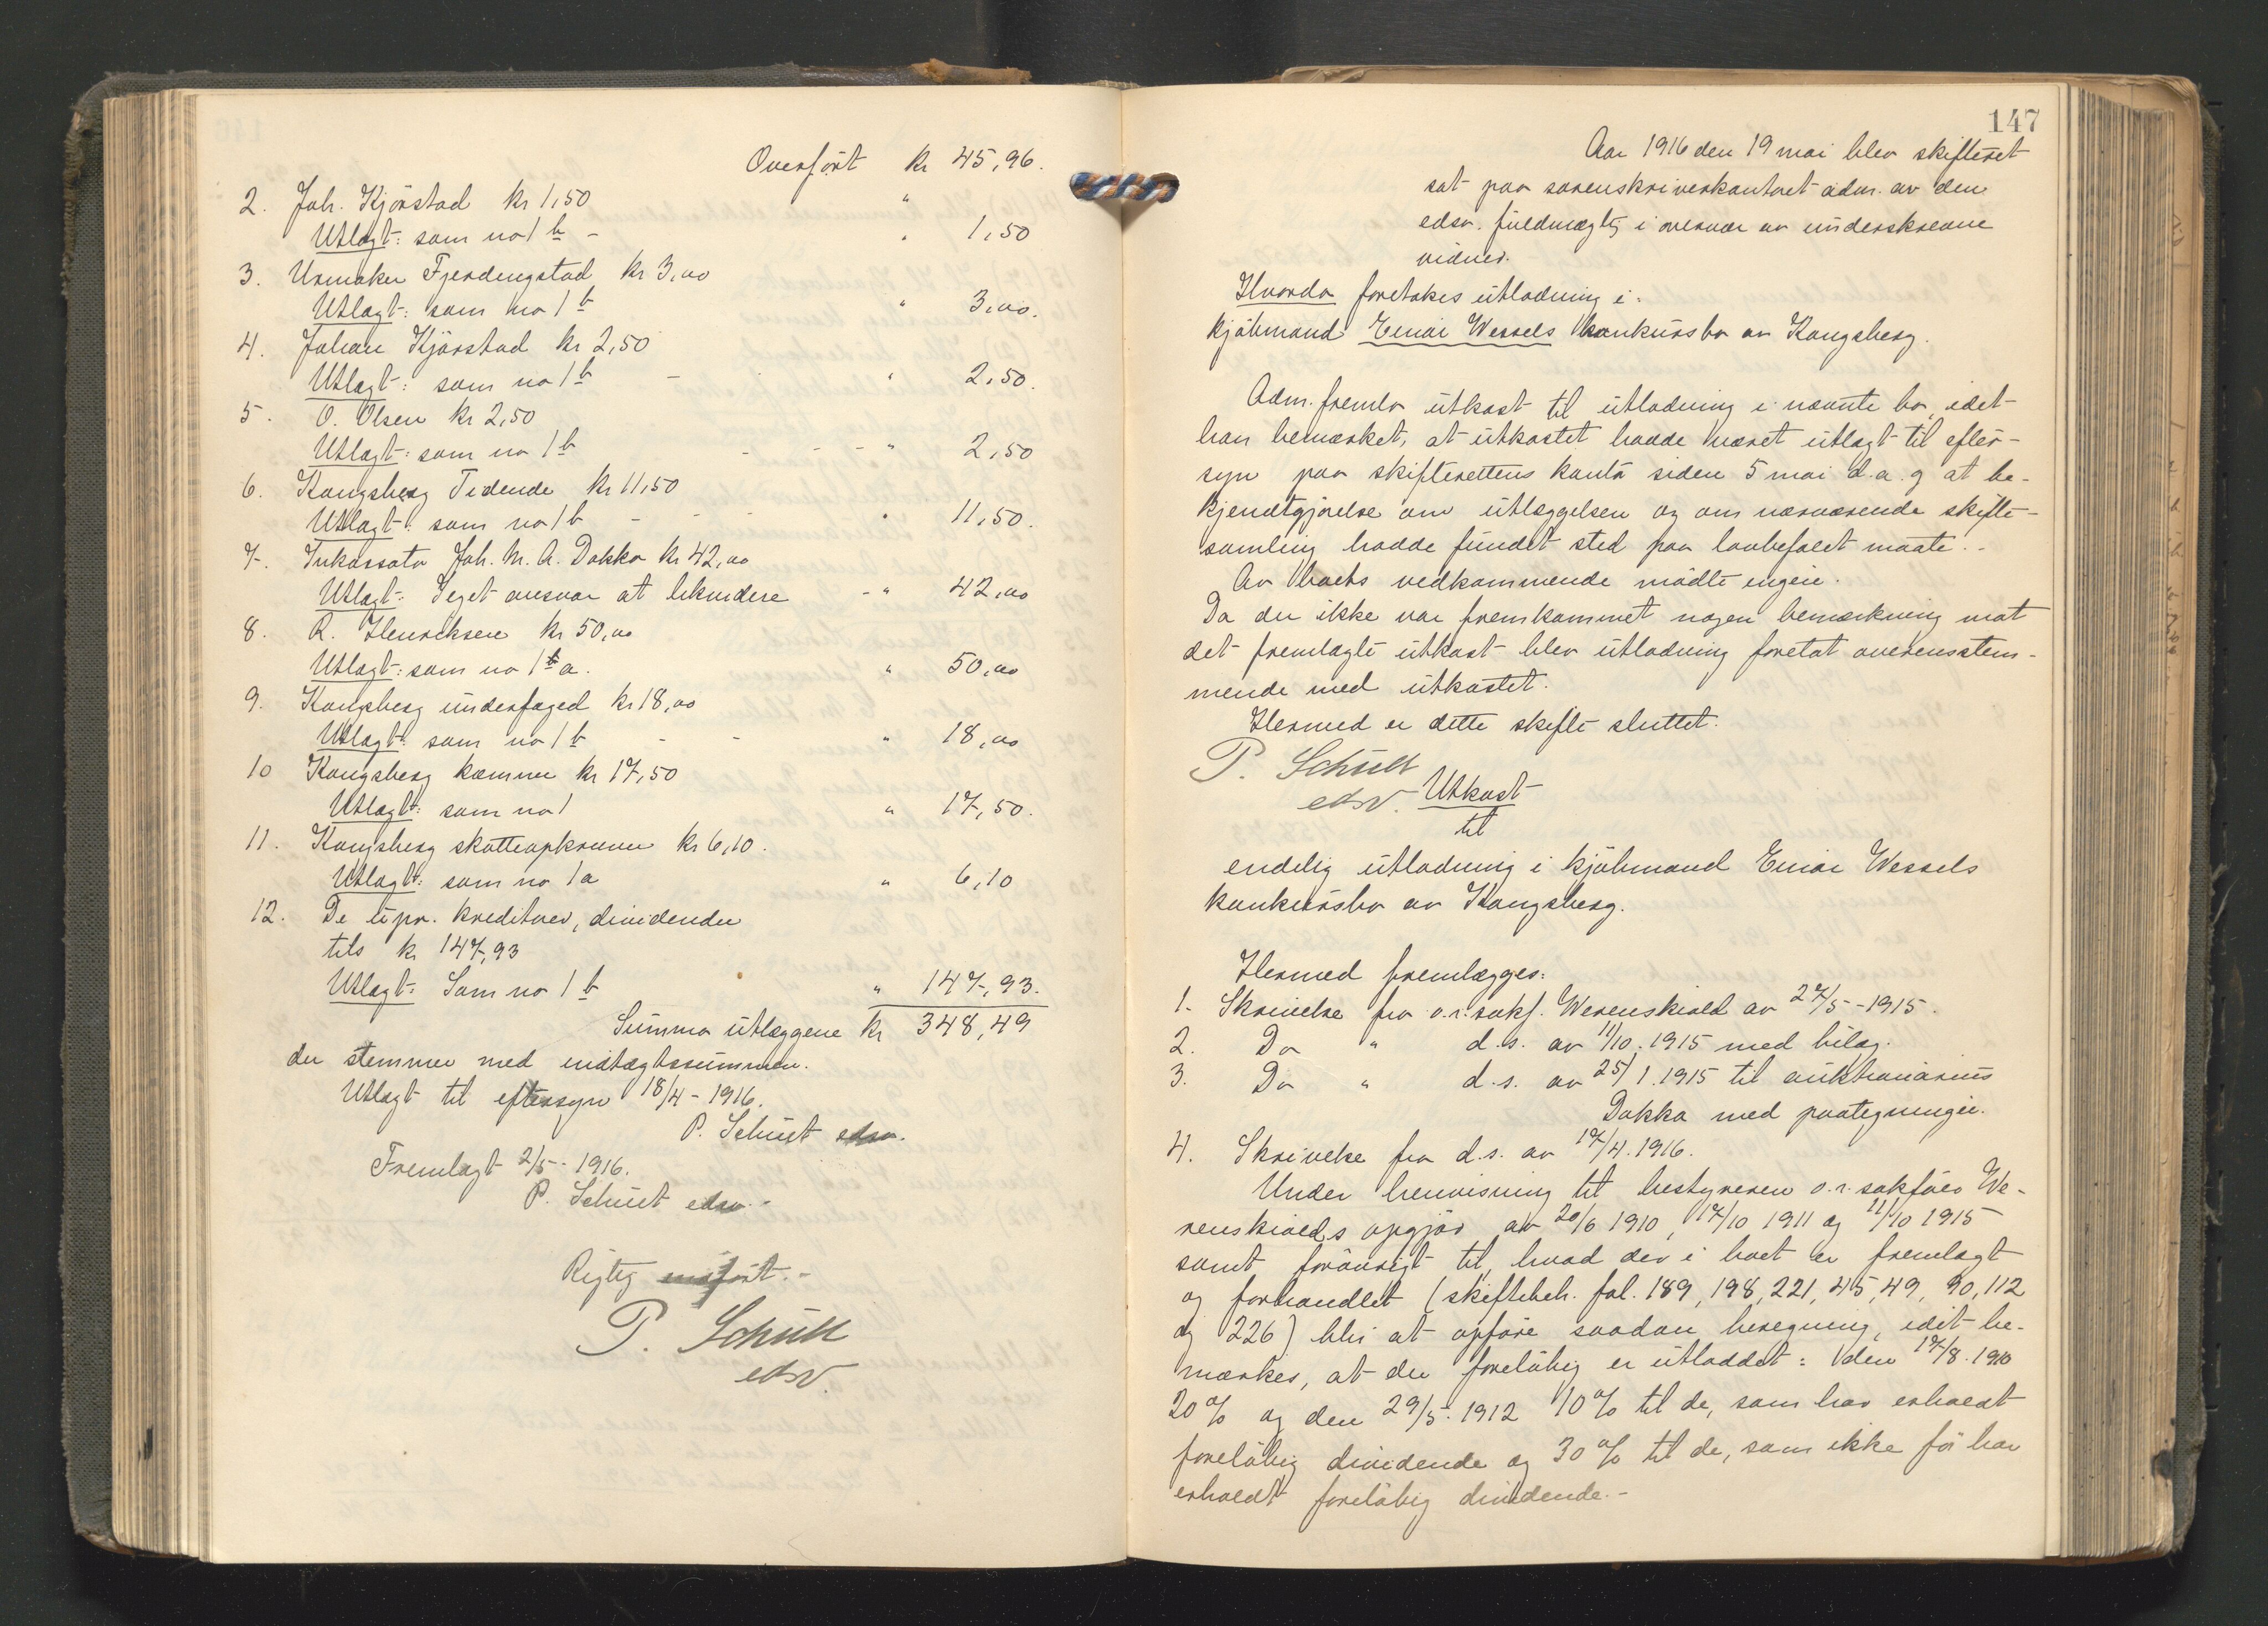 Overført kr 45,96.
2. Joh. Kjörstad kr 1,50 "
Utlagt: som no 1 b - " 1,50
3. Urmaker Fjerdingstad kr 3,00
Utlagt: som no 1 b " 3,00.
4. Johan Kjörstad kr 2,50
Utlagt: som no 1 b - " 2,50.
5. O. Olsen kr 2,50
Utlagt: som no 1 b - - - " 2,50
6. Kongsberg Tidende kr 11,50
Utlagt: som no 1 b - - - " 11,50.
7. Inkassato Joh. M. A. Dokka kr 42,00
Utlagt: I eget ansvar at likvidere - " 42,00
8. R. Henriksen kr 50,00
Utlagt: som no 1 a. " 50,00
9. Kongsberg underfoged kr 18,00
Utlagt: som no 1 b - - " 18,00
10 Kongsberg kæmner kr 17,50
Utlagt: som no 1 " 17,50.
11. Kongsberg skatteopkræver kr 6,10.
Utlagt: som no 1 a " 6,10
12. De upr. kreditorer, dividender
tils kr 147,93
Utlagt: Som no 1 b " 147,93.
Summa utlæggene kr 348,49
der stemmer med indtægtssummen.
Utlagt til eftersyn 18/4 - 1916.
P. Schult edsv.
Fremlagt 2/5 - 1916.
P. Schult edsv. -
Rigtig indført. -
P. Schult
edsv.
147
Aar 1916 den 19 mai blev skifteret
sat paa sorenskriverkontoret adm. av den
edsv. fuldmægtig i overvær av underskrevne
vidner.
Hvorda foretokes utlodning i:
kjöbmand Einar Wessels konkursbo av Kongsberg.
Adm. fremla utkast til utlodning i nævnte bo, idet
han bemærket, at utkastet hadde været utlagt til efter-
syn paa skifterettens kontor siden 5 mai d.a. og at be-
kjendtgjörelse om utlæggelsen og om nærværende skifte-
samling hadde fundet sted paa lovbefalet maate. -
Av boets vedkommende mödte ingen.
Da der ikke var fremkommet nogen bemærkning mot
det fremlagte utkast blev utlodning foretat overensstem-
mende med utkastet.
Hermed er dette skifte sluttet.
P. Schult
edsv. Utkast
til
endelig utlodning i kjöbmand Einar Wessels
konkursbo av Kongsberg.
Hermed fremlægges:
1. Skrivelse fra o.r.sakf. Werenskiold av 27/5 - 1915.
2. Do " d.s. av 11/10. 1915 med bilag.
3. Do " d.s. av 25/1. 1915 til auktionarius
Dokka med paategninger.
4. Skrivelse fra d.s. av 17/4. 1916.
Under henvisning til bestyreren o.r. sakförer We-
renskiolds opgjör av 20/6 1910, 17/10 1911 og 11/10 1915
samt forövrigt til, hvad der i boet er fremlagt
og forhandlet (skiftebeh. fol. 189, 198, 221, 45, 49, 90, 112
og 226) blir at opföre saadan beregning, idet be-
mærkes, at der forelöbig er utloddet: den 17/8. 1910
20% og den 29/5. 1912 10% til de, som har erholdt
forelöbig dividende og 30% til de, som ikke för har
erholdt forelöbig dividende. -